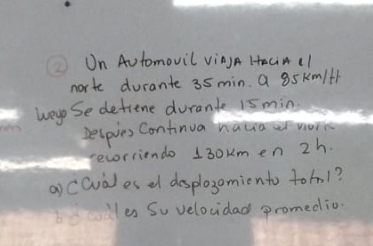 ② Un Automovil viAJA HaciA el
norte durante 35 min. a 85 Km/H
luego Se detiene durante 15 min.
Despues Continua hacia el norte
recorriendo 130 Km en 2 h.
a) Cual es el desplozamiento total?
b) Cual es Su velocidad promedio.